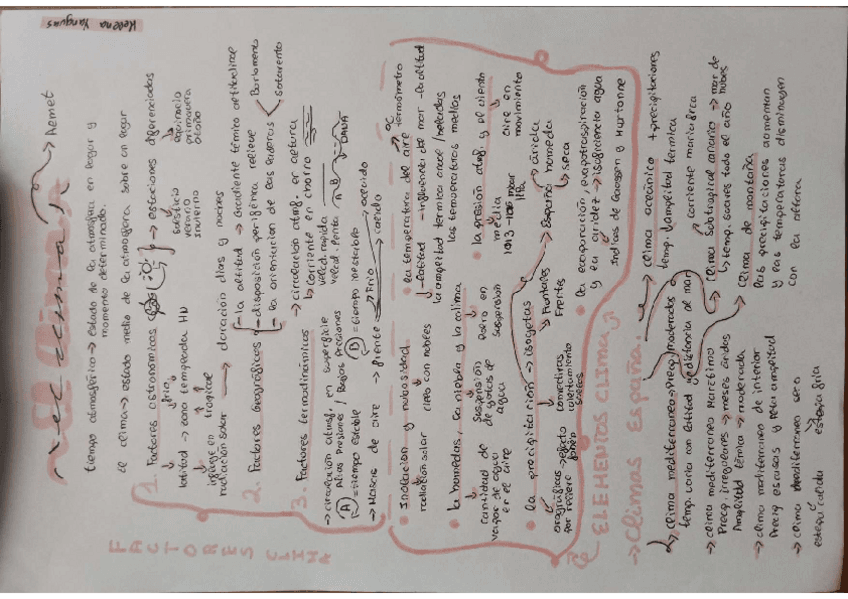 Rellena Yanguas
El Clima
→ Aemet
tiempo atmosférico → Estado de la atmosfera en lugar y
momento determinado.
El clima → estado medio de la atmosfera sobre un lugar
FACTORES CLIMA
1. Factores astronómicos
→ estaciones diferenciadas
solsticio
verano
invierno
equinocio
primavera
otoño
latitud → zona templada HN
frio
tropical
influye en
radiación solar → duración días y noches
2. Factores Geográficos
- la altitud → Gradiente térmico altitudinal
- disposición periférica relieve
- la orientación de las laderas
Barlovento
Sotavento
3. Factores termodinámicos
→ circulación atmsf. en altura
↳ corriente en chorro
velid. rapida
velid. lenta
DANA
→ circulación atmsf. en superficie
Altas Presiones / Bajas Presiones
A = tiempo estable
B = tiempo inestable
→ Masas de aire → frente
frio
calido
ocluido
• Insolacion y nubosidad
radiación solar
cielo con nubes
• la temperatura del aire → °C termómetro
- latitud - influencia de mar - la altitud
la amplitud termica anual / heladas
las temperaturas medias
• la humedad, la niebla y la calima
cantidad de
vapor de agua
en el aire
suspensión
de gotas de
agua
Polvo en
suspensión
• la presión atmsf. y el viento
media
1013 mbar
aire en
movimiento
• la precipitación → isoyetas
→ España
árida
humeda
seca
orográficas
por relieve → efecto
foehn
convectivas
calentamiento
suelos
Frontales
Frentes
• la evaporación, evapotranspiración
y la aridez → insuficiencia agua
Indices de Gaussen y Martonne
ELEMENTOS CLIMA
→ Climas España.
→ clima oceánico + precipitaciones
temp. ↓ amplitud termica
→ Clima mediterraneo → Precip moderadas o
temp. varia con latitud y distancia al mar
→ clima mediterraneo Marítimo
Precip. irregulares → meses áridos
Amplitud térmica → moderada
→ clima mediterraneo de interior
Precip escasas y alta amplitud
→ clima mediterraneo seco
estepa calida
estepa fria
→ clima Subtropical canario → mar de
nubes
corriente marina fria
↳ temp. suaves todo el año
→ clima de montaña
las precipitaciones aumentan
y las temperaturas disminuyen
con la altura